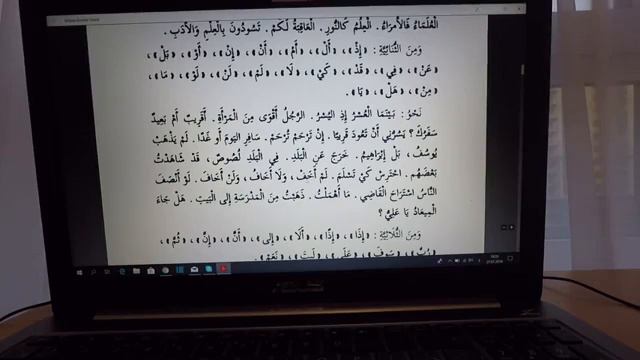 العُلَمَاءُ فَالأُمَرَاءُ . العِلْمُ كَالنُّورِ . العَاقِبَةُ لَكُمْ . تَسُودُونَ بِالعِلْمِ وَالأَدَبِ .
وَمِنَ الثُّنَائِيَّةِ : « إِذْ » ، « أَلْ » ، « أَمْ » ، « أَنْ » ، « إِنْ » ، « أَوْ » ، « بَلْ » ،
« عَنْ » ، « فِي » ، « قَدْ » ، « كَيْ » ، « لَا » ، « لَمْ » ، « لَنْ » ، « لَوْ » ، « مَا » ،
« مِنْ » ، « هَلْ » ، « يَا » .
نَحْوُ : بَيْنَمَا العُسْرُ إِذِ اليُسْرُ . الرَّجُلُ أَقْوَى مِنَ المَرْأَةِ . أَقَرِيبٌ أَمْ بَعِيدٌ
سَفَرُكَ ؟ يَسُرُّنِي أَنْ تَعُودَ قَرِيبًا . إِنْ تَرْحَمْ تُرْحَمْ . سَافِرِ اليَوْمَ أَوْ غَدًا . لَمْ يَذْهَبْ
يُوسُفُ ، بَلْ إِبْرَاهِيمُ . خَرَجَ عَنِ البَلَدِ . فِي البَلَدِ لُصُوصٌ . قَدْ شَاهَدْتُ
بَعْضَهُمْ . احْتَرِسْ كَيْ تَسْلَمَ . لَمْ أَخَفْ ، وَلَا أَخَافُ ، وَلَنْ أَخَافَ . لَوْ أَنْصَفَ
النَّاسُ اسْتَرَاحَ القَاضِي . مَا أَهْمَلْتُ . ذَهَبْتُ مِنَ المَدْرَسَةِ إِلَى البَيْتِ . هَلْ جَاءَ
المِيعَادُ يَا عَلِيُّ ؟
وَمِنَ الثُّلَاثِيَّةِ : « إِذَا » ، « إِذًا » ، « أَلَا » ، « إِلَى » ، « أَنَّ » ، « إِنَّ » ، « ثُمَّ » ،
« رُبَّ » ، « سَوْفَ » ، « عَلَى » ، « لَيْتَ » ، « نَعَمْ » .